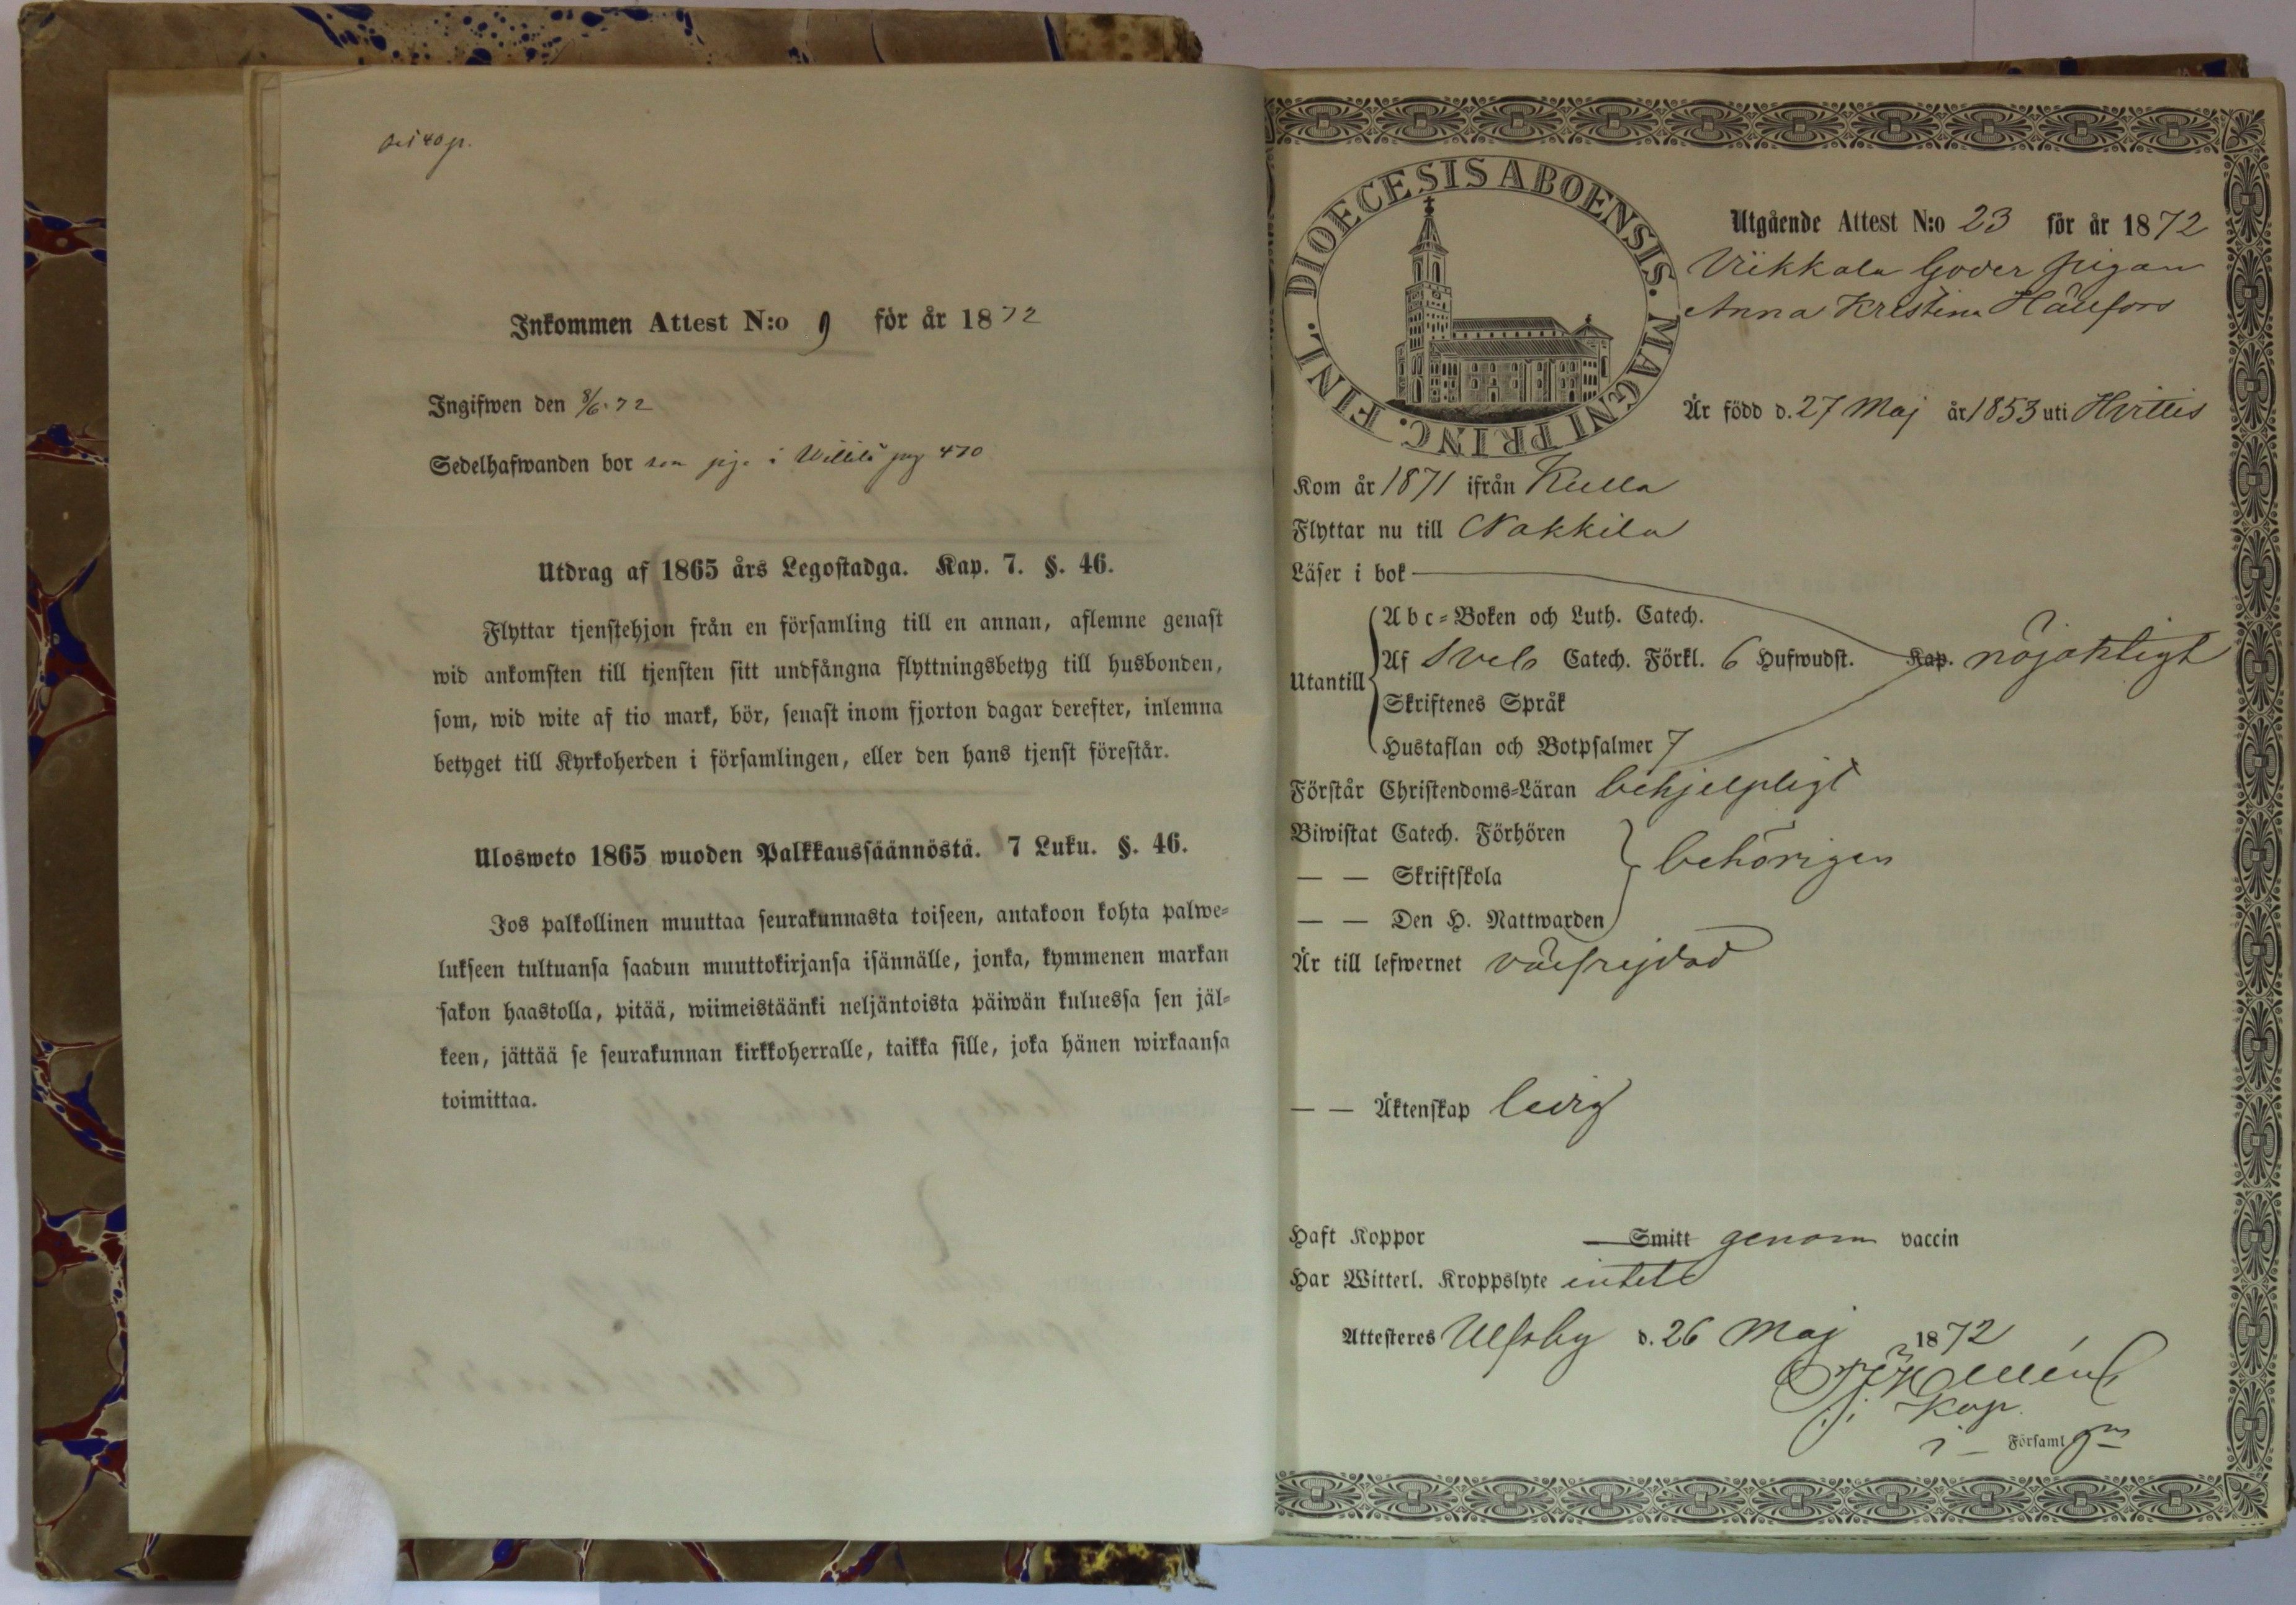 Inkommen Attest N:o 9 för år 1872
Ingifwen den 8/6.72
Sedelhafwanden bor som pig. i Willilä pag 470
Utdrag af 1865 års Legostadga. Kap. 7. §. 46.
Flyttar tjenstehjon från en församling till en annan, aflemne genast
wid ankomsten till tjensten sitt undfångna flyttningsbetyg till husbonden,
som, wid wite af tio mark, bör, senast inom fjorton dagar derefter, inlemna
betyget till Kyrkoherden i församlingen, eller den hans tjenst förestår.
Ulosweto 1865 wuoden Palkkaussäännöstä. 7 Luku. §. 46.
Jos palkollinen muuttaa seurakunnasta toiseen, antakoon kohta palwe=
lukseen tultuansa saadun muuttokirjansa isännälle, jonka, kymmenen markan
sakon haastolla, pitää, wiimeistäänki neljäntoista päiwän kuluessa sen jäl=
keen, jättää se seurakunnan kirkkoherralle, taikka sille, joka hänen wirkaansa
toimittaa.
DIOECESIS ABOENSIS. MAGNI PRINC. FINL.
Utgående Attest N:o 23 för år 1872
Viikkala Goder pigan
Anna Kristina Hällfors
Är född d. 27 Maj år 1853 uti Hvittis
Kom år 1871 ifrån Kulla
Flyttar nu till Nakkila
Läser i bok
Utantill
Abc=Boken och Luth. Catech.
Af Sveb Catech. Förkl. 6 Hufwudst. Kap. nöjaktigt
Skriftenes Språk
Hustaflan och Botpsalmer 7
Förstår Christendoms=Läran behjelpligt
Biwistat Catech. Förhören
— — Skriftskola behörigen
— — Den H. Nattwarden
Är till lefwernet välfrejdad
— — Äktenskap ledig
Haft Koppor Smitt genom vaccin
Har Witterl. Kroppslyte intet
Attesteres Ulfsby d. 26 Maj 1872
Kap.
i — Församl gn